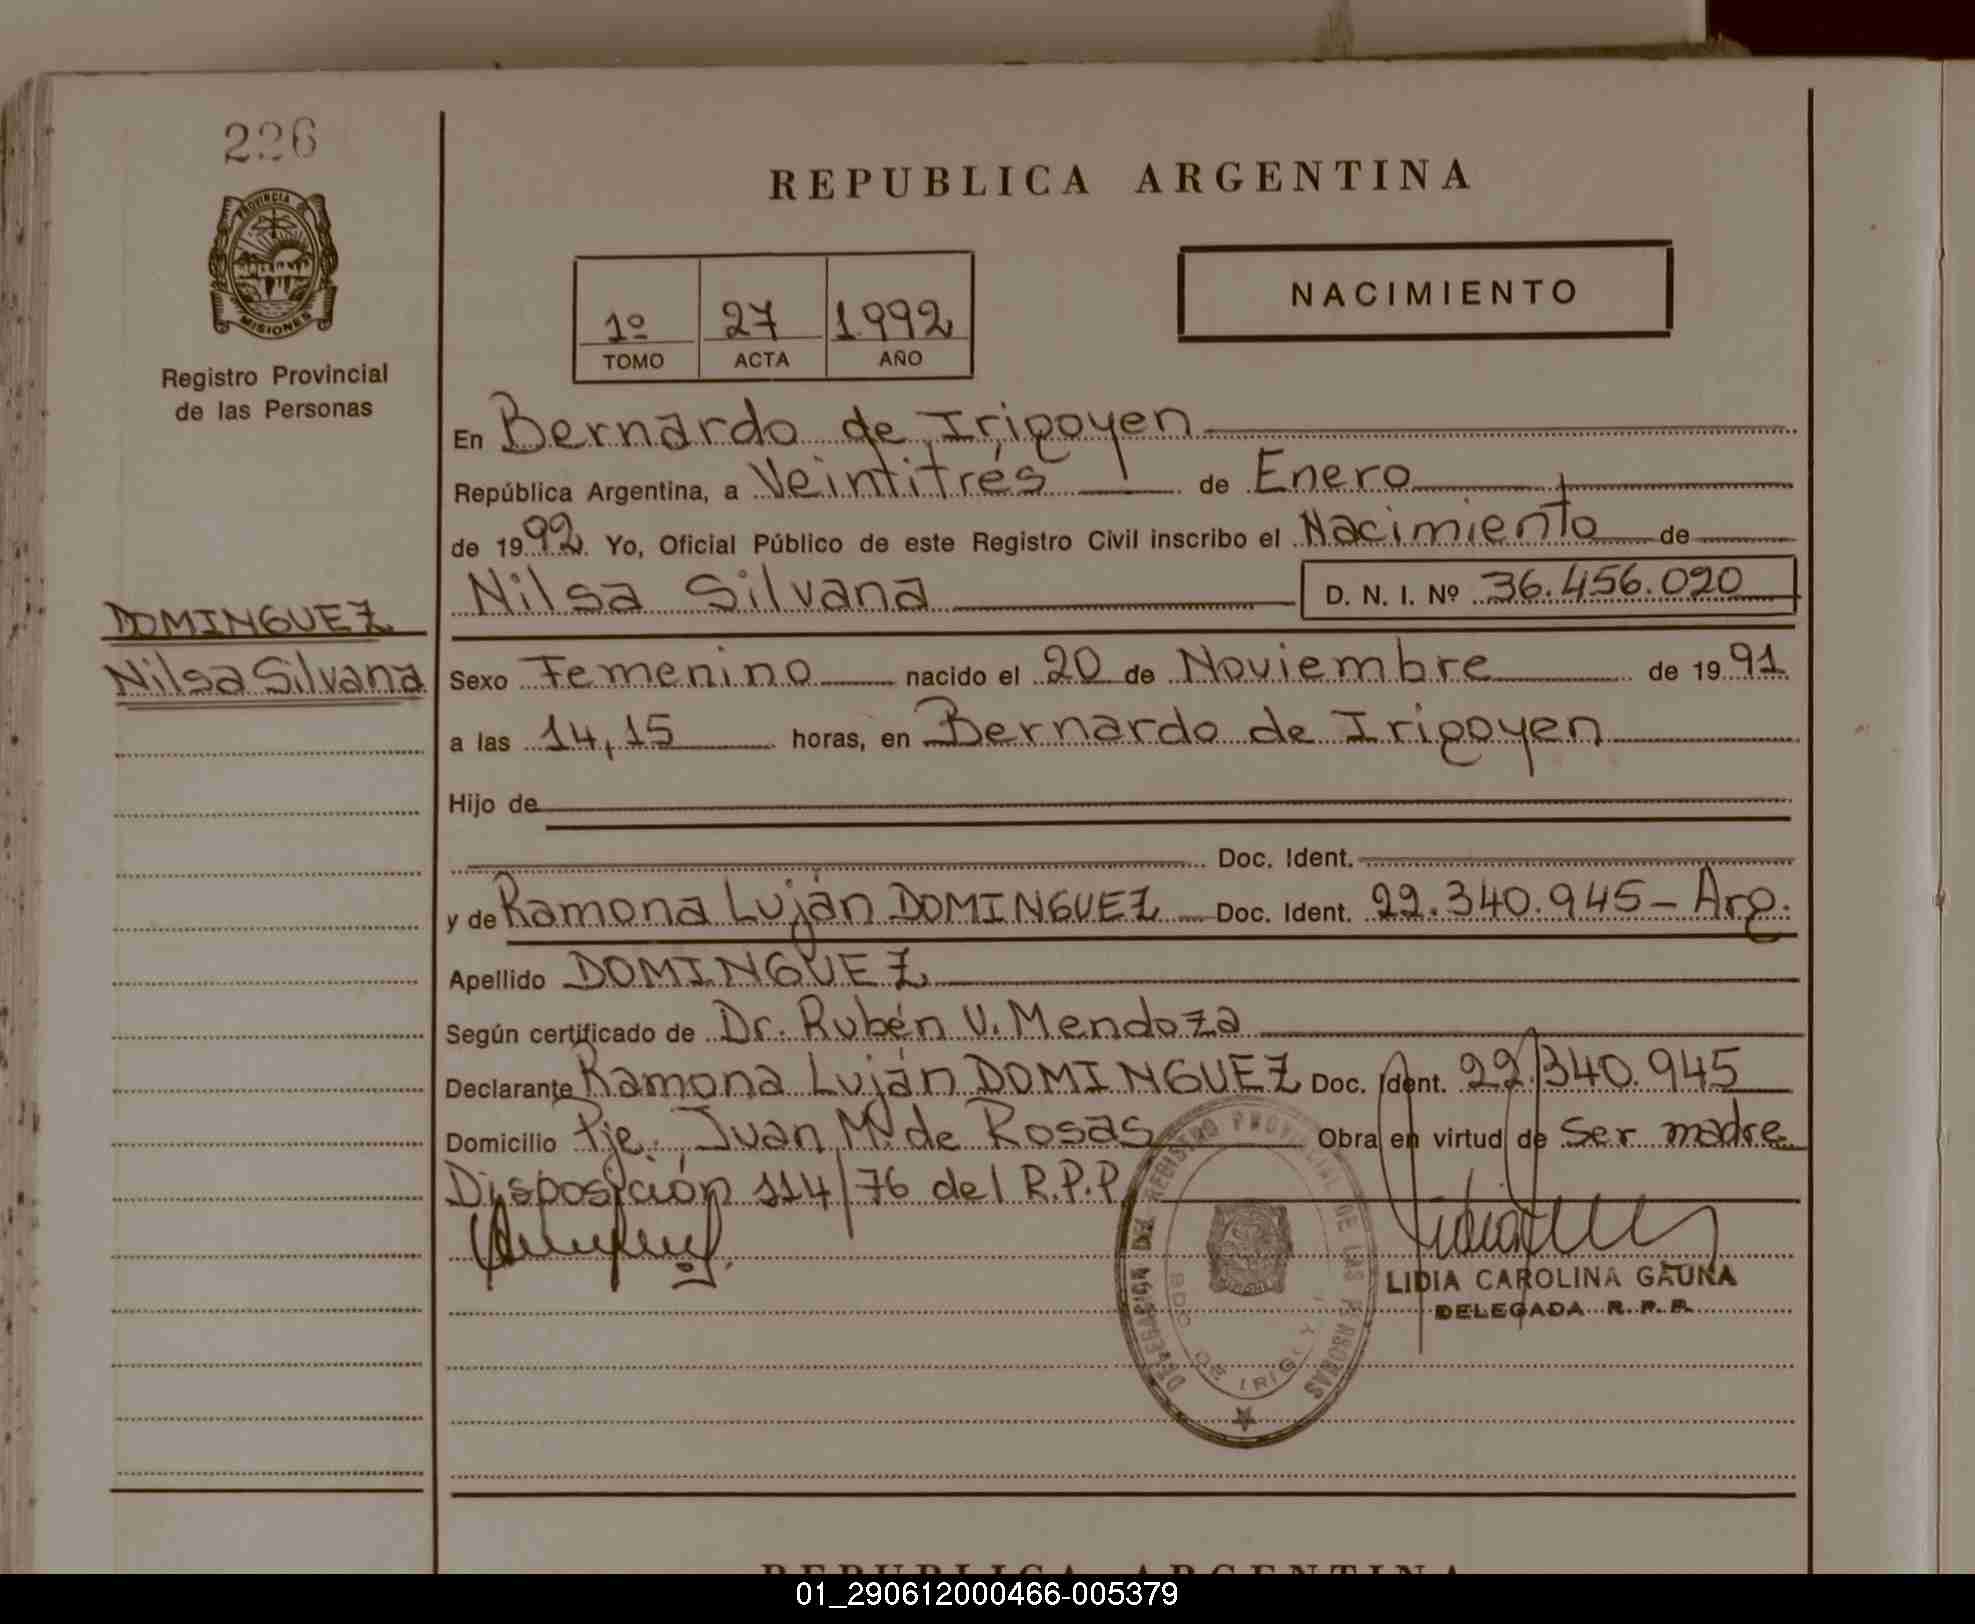 226
PROVINCIA
MISIONES
Registro Provincial
de las Personas
DOMINGUEZ
Nilsa Silvana
REPUBLICA ARGENTINA
1º 27 1992
TOMO ACTA AÑO
NACIMIENTO
En Bernardo de Irigoyen
República Argentina, a Veintitrés de Enero
de 1992. Yo, Oficial Público de este Registro Civil inscribo el Nacimiento de
Nilsa Silvana D. N. I. Nº 36.456.020
Sexo Femenino nacido el 20 de Noviembre de 1991
a las 14,15 horas, en Bernardo de Irigoyen
Hijo de
Doc. Ident.
y de Ramona Luján DOMINGUEZ Doc. Ident. 22.340.945- Arg.
Apellido DOMINGUEZ
Según certificado de Dr. Rubén V. Mendoza
Declarante Ramona Luján DOMINGUEZ Doc. Ident. 22.340.945
Domicilio Pje. Juan M. de Rosas Obra en virtud de ser madre
Disposición 114/76 del R.P.P.
DELEGACION DEL REGISTRO PROVINCIAL DE LAS PERSONAS
BDO DE IRIGOY
LIDIA CAROLINA GAUNA
DELEGADA R. P. P.
REPUBLICA ARGENTINA
01_290612000466-005379